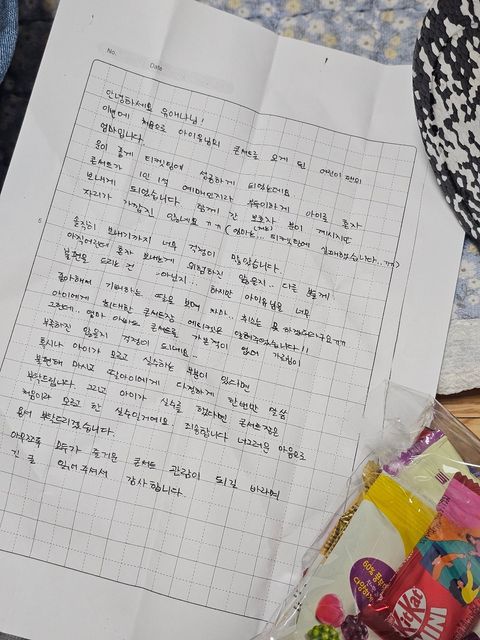 No. Date
안녕하세요 유애나님!
이번에 처음으로 아이유님의 콘서트를 오게 된 어린이 팬의
엄마입니다.
운이 좋게 티켓팅에 성공하게 되었는데요
콘서트가 1인 1석 예매인지라 부득이하게 아이를 혼자
보내게 되었습니다. 함께 간 보호자 분이 계시지만
자리가 가깝진 않네요ㅠㅠ (엄마는... 티켓팅에 실패했습니다..ㅠㅠ)
솔직히 보내기까지 너무 걱정이 많았습니다.
아직어린데 혼자 보내는게 위험하진 않을지.. 다른 분들께
불편을 드리는 건 아닌지... 하지만 아이유님을 너무
좋아해서 기뻐하는 딸을 보며 차마.. 취소는 못 하겠더라구요ㅠㅠ
아이에게 최대한 콘서트장 에티켓은 알려주었습니다!!
그런데.. 엄마 아빠도 콘서트를 가본적이 없어 가르침이
부족하진 않을지 걱정이 되네요..
혹시나 아이가 모르고 실수하는 부분이 있다면
불편해 마시고 딸아이에게 다정하게 한번만 말씀
부탁드립니다. 그리고 아이가 실수를 했다면 콘서트장은
처음이라 모르고 한 실수인거에요. 죄송합니다 너그러운 마음으로
용서 부탁드리겠습니다.
아무쪼록 모두가 즐거운 콘서트 관람이 되길 바라며
긴 글 읽어주셔서 감사합니다.
60%
KitKat
MINI